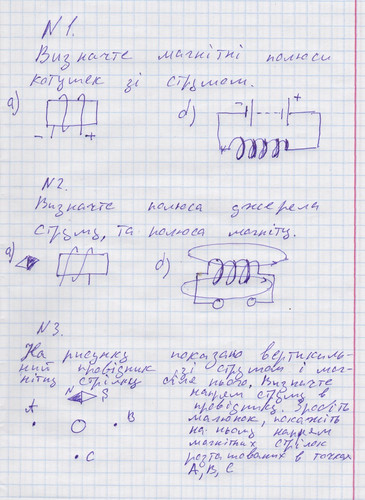 N 1.
Визначте магнітні полюси
котушек зі струмом.
а) б)
- + - +
N2.
Визначте полюса джерела
струму, та полюса магніту.
а) б)
N3.
На рисунку показано вертикаль-
ний провідник зі струмом і маг-
нітну стрілку біля нього. Визначте
напрям струму в
N S
провіднику. Зробіть
A
малюнок, покажіть
B
на ньому напрям
магнітних стрілок
C
розташованих в точках
А, В, С